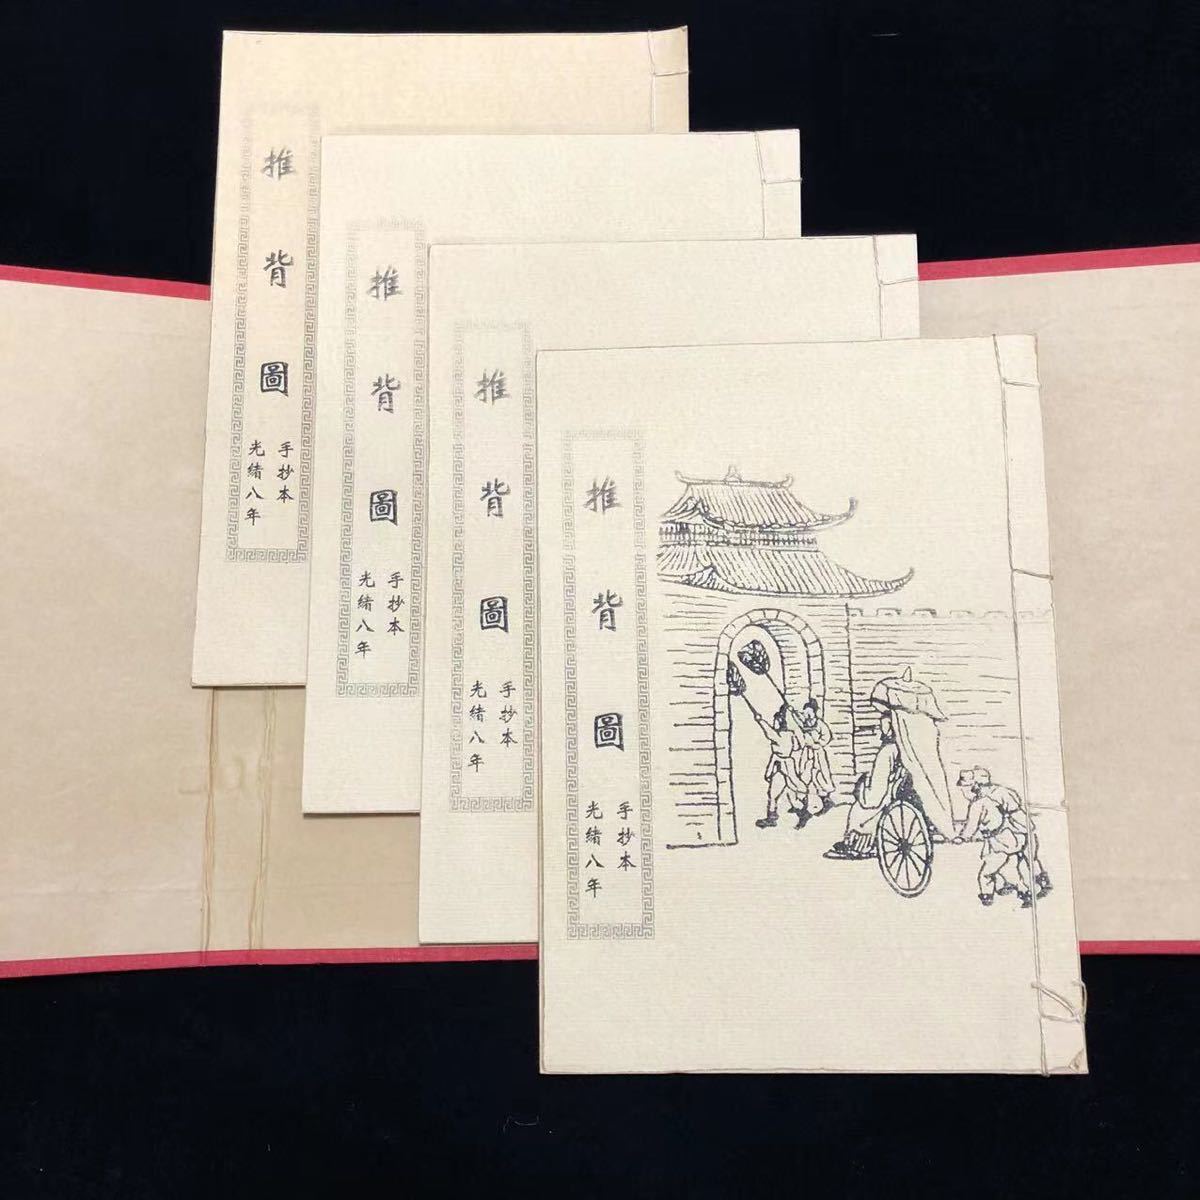 推背圖
手抄本
光緒八年
推背圖
手抄本
光緒八年
推背圖
手抄本
光緒八年
推背圖
手抄本
光緒八年